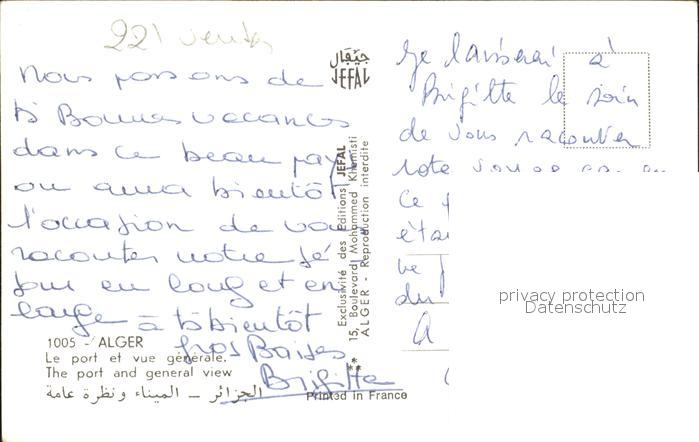 221 ventes
Nous passons de
ts Bonnes vacances
dans ce beau pays
on aura bientôt
l'occasion de vous
raconter notre sé
jour en long et en
large à ts bientôt
gros Baises
Brigitte
1005 - ALGER
Le port et vue générale.
The port and general view
الجزائر — الميناء ونظرة عامة
جيفال
JEFAL
Exclusivité des Editions JEFAL
15, Boulevard Mohammed Khemisti
ALGER - Reproduction interdite
Printed in France
Je laisserai à
Brigitte le soin
de vous raconter
ce
du
A
privacy protection
Datenschutz